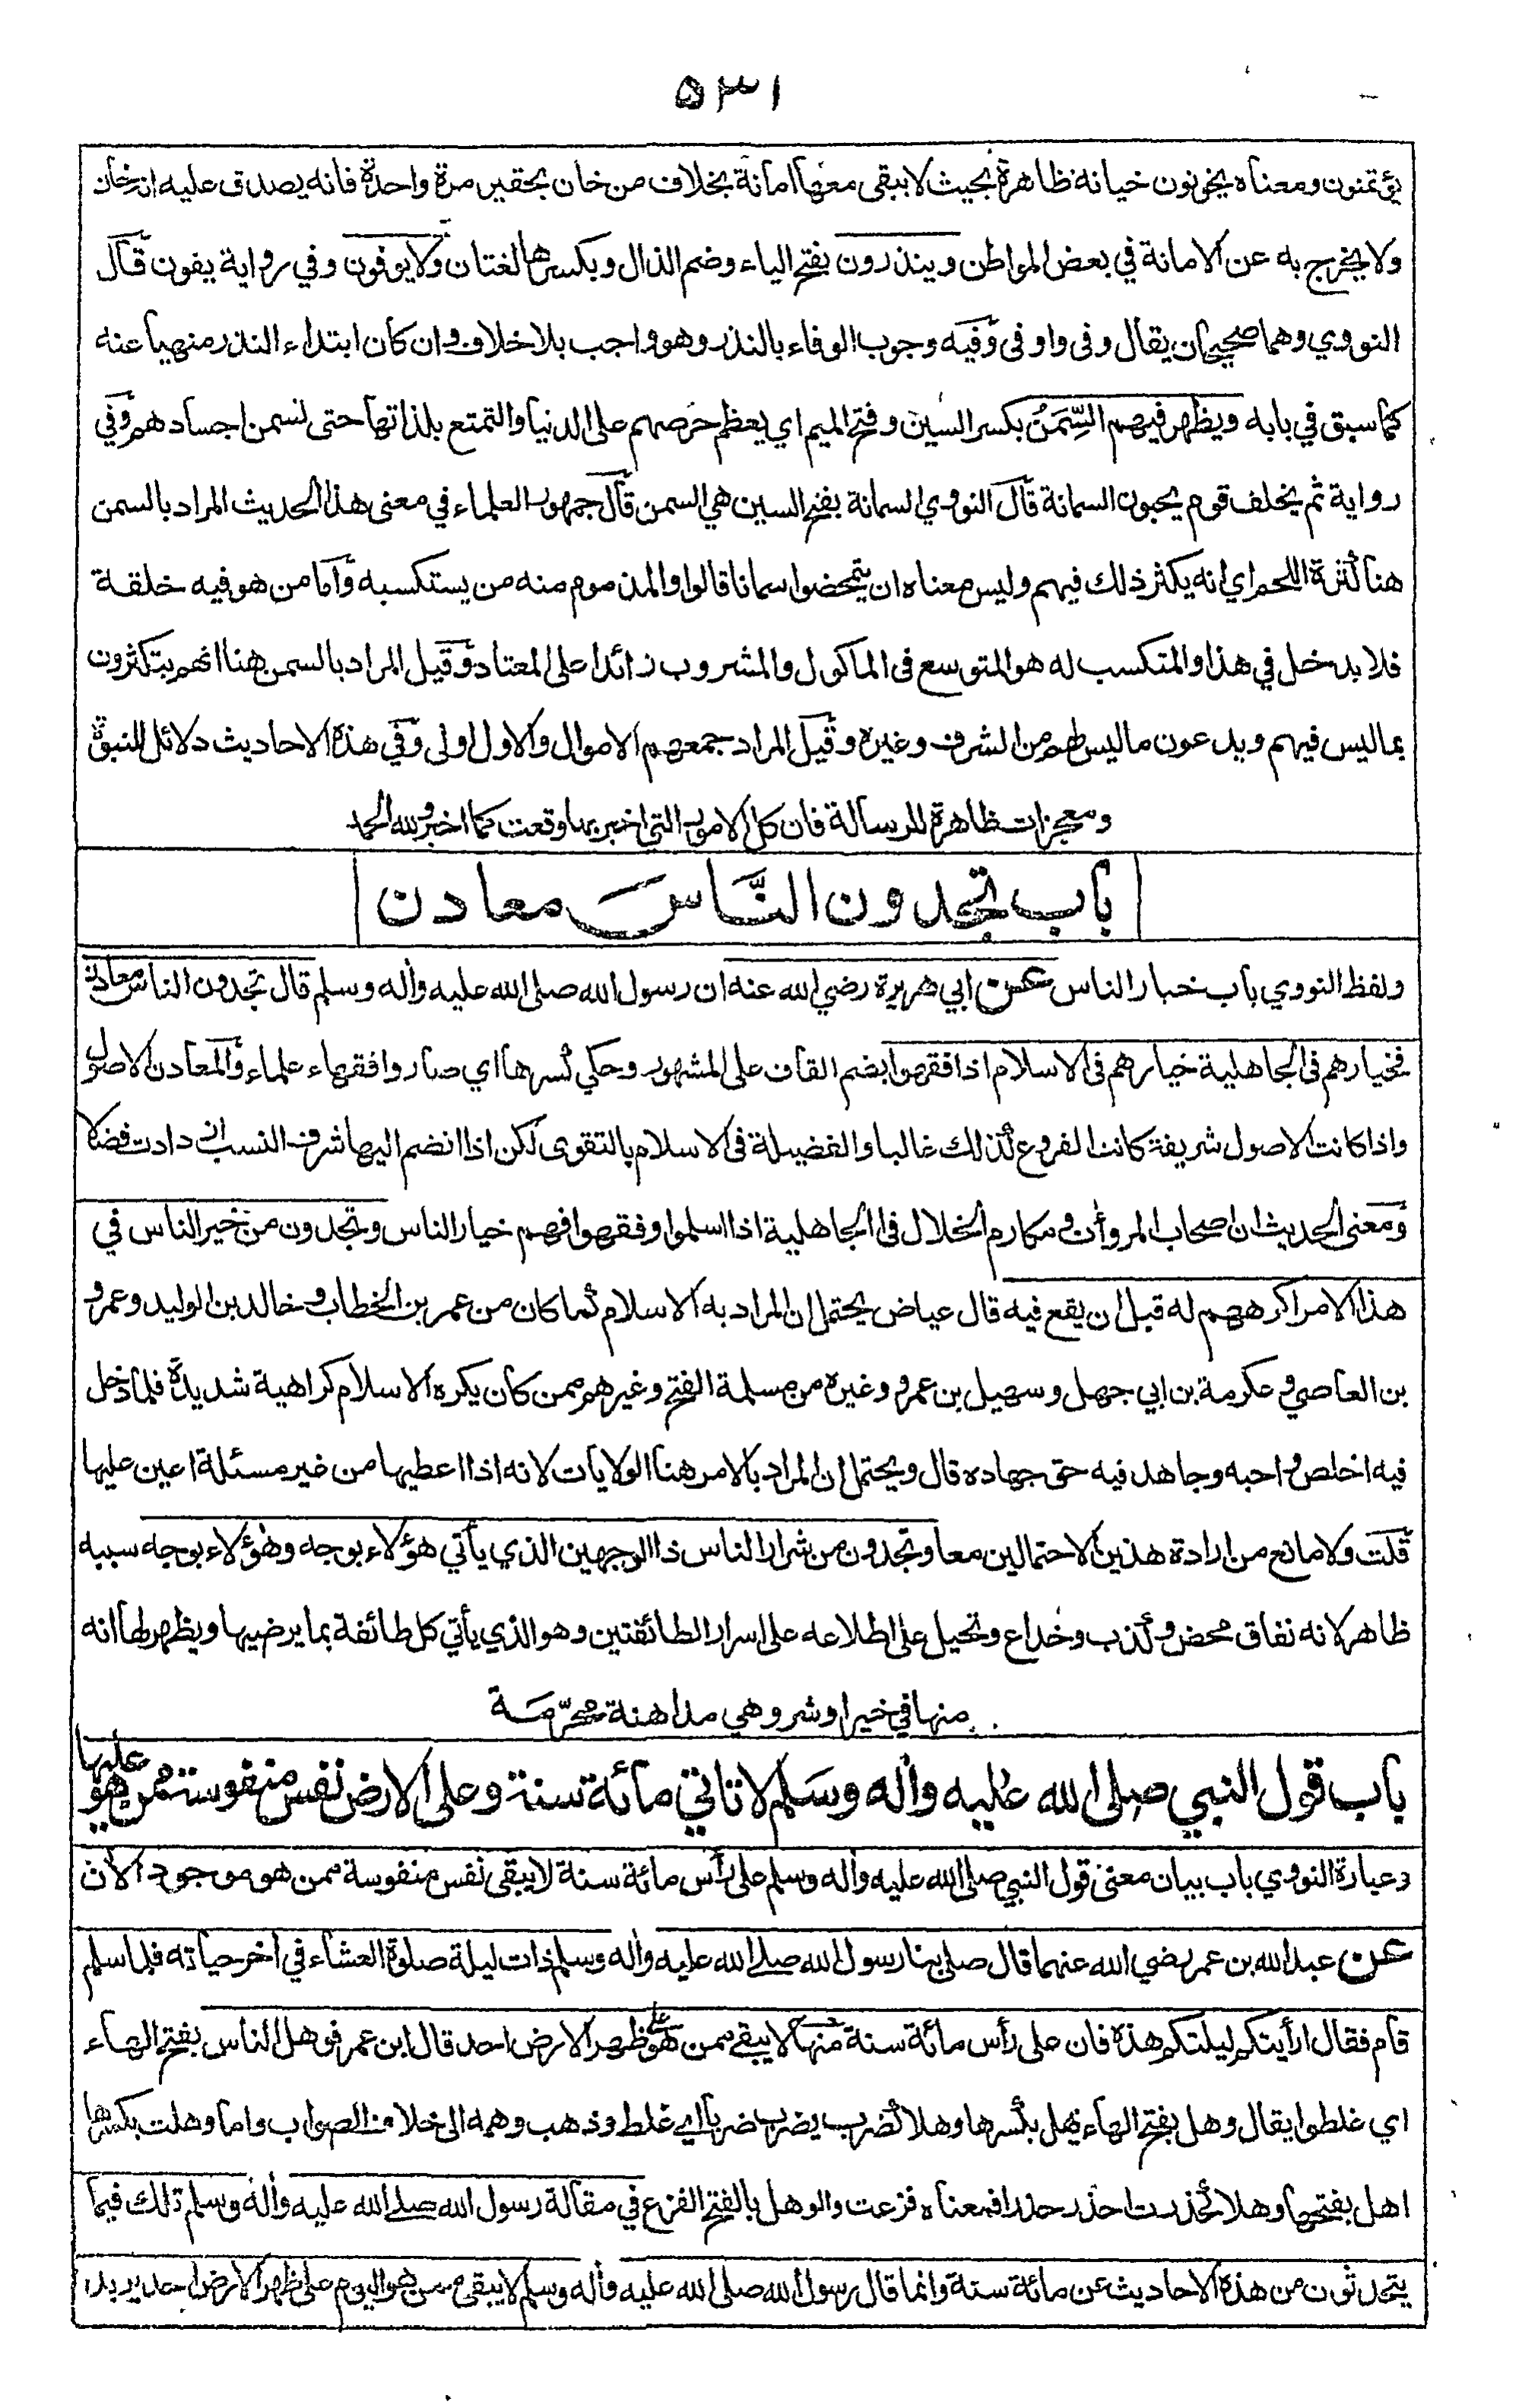 ٥٣١
يؤتمنون ومعناه يخونون خيانة ظاهرة بحيث لا يبقى معها امانة بخلاف من خان بحقير مرة واحدة فانه يصدق عليه انه خان
ولا يخرج به عن الامانة في بعض المواطن وينذرون بفتح الياء وضم الذال وبكسرها لغتان ولا يوفون وفي رواية يفون قال
النووي وهما صحيحان يقال وفى واوفى وفيه وجوب الوفاء بالنذر وهو واجب بلا خلاف وان كان ابتداء النذر منهيا عنه
كما سبق في بابه ويظهر فيهم السِّمَنُ بكسر السين وفتح الميم اي يعظم حرصهم على الدنيا والتمتع بلذاتها حتى تسمن اجسادهم وفي
رواية ثم يخلف قوم يحبون السمانة قال النووي السمانة بفتح السين هي السمن قال جمهور العلماء في معنى هذا الحديث المراد بالسمن
هنا كثرة اللحم اي انه يكثر ذلك فيهم وليس معناه ان يتمحضوا سمانا قالوا والمذموم منه من يستكسبه واما من هو فيه خلقة
فلا يدخل في هذا والمتكسب له هو المتوسع فى الماكول والمشروب زائدا على المعتاد وقيل المراد بالسمن هنا انهم يتكثرون
بما ليس فيهم ويدعون ما ليس لهم من الشرف وغيره وقيل المراد جمعهم الاموال والاول اولى وفي هذه الاحاديث دلائل للنبوة
ومعجزات ظاهرة للرسالة فان كل الامور التي اخبر بها وقعت كما اخبر ولله الحمد
باب تجدون النَّاسَ معادن
ولفظ النووي باب خيار الناس عن ابي هريرة رضي الله عنه ان رسول الله صلى الله عليه واله وسلم قال تجدون الناس معادن
فخيارهم فى الجاهلية خيارهم فى الاسلام اذا فقهوا بضم القاف على المشهور وحكي كسرها اي صاروا فقهاء علماء والمعادن الاصول
واذا كانت الاصول شريفة كانت الفروع كذلك غالبا والفضيلة فى الاسلام بالتقوى لكن اذا انضم اليها شرف النسب ازدادت فضلا
ومعنى الحديث ان اصحاب المروأت ومكارم الخلال فى الجاهلية اذا اسلموا وفقهوا فهم خيار الناس وتجدون من خير الناس في
هذا الامر اكرههم له قبل ان يقع فيه قال عياض يحتمل ان المراد به الاسلام كما كان من عمر بن الخطاب وخالد بن الوليد وعمرو
بن العاصي وعكرمة بن ابي جهل وسهيل بن عمرو وغيره من مسلمة الفتح وغيرهم ممن كان يكره الاسلام كراهية شديدة فلما دخل
فيه اخلص واحبه وجاهد فيه حق جهاده قال ويحتمل ان المراد بالامر هنا الولايات لانه اذا اعطيها من غير مسئلة اعين عليها
قلت ولا مانع من ارادة هذين الاحتمالين معا وتجدون من شرار الناس ذا الوجهين الذي يأتي هؤلاء بوجه وهؤلاء بوجه سببه
ظاهر لانه نفاق محض وكذب وخداع وتحيل على اطلاعه على اسرار الطائفتين وهو الذي يأتي كل طائفة بما يرضيها ويظهر لها انه
منها في خير او شر وهي مداهنة محرّمة
باب قول النبي صلى الله عليه واله وسلم لا تاتي مائة سنة وعلى الارض نفس منفوسة ممن هو عليها
وعبارة النووي باب بيان معنى قول النبي صلى الله عليه واله وسلم على رأس مائة سنة لا يبقى نفس منفوسة ممن هو موجود الان
عن عبد الله بن عمر رضي الله عنهما قال صلى بنا رسول الله صلى الله عليه واله وسلم ذات ليلة صلوة العشاء في اخر حياته فلما سلم
قام فقال ارأيتكم ليلتكم هذه فان على رأس مائة سنة منها لا يبقى ممن هو على ظهر الارض احد قال ابن عمر فوهل الناس بفتح الهاء
اي غلطوا يقال وهل بفتح الهاء يهل بكسرها وهلا كضرب يضرب ضربا اي غلط وذهب وهمه الى خلاف الصواب واما وهلت بكسرها
اهل بفتحها وهلا كحذرت احذر حذرا فمعناه فزعت والوهل بالفتح الفزع في مقالة رسول الله صلى الله عليه واله وسلم تلك فيما
يتحدثون من هذه الاحاديث عن مائة سنة وانما قال رسول الله صلى الله عليه واله وسلم لا يبقى ممن هو اليوم على ظهر الارض احد يريد بذلك